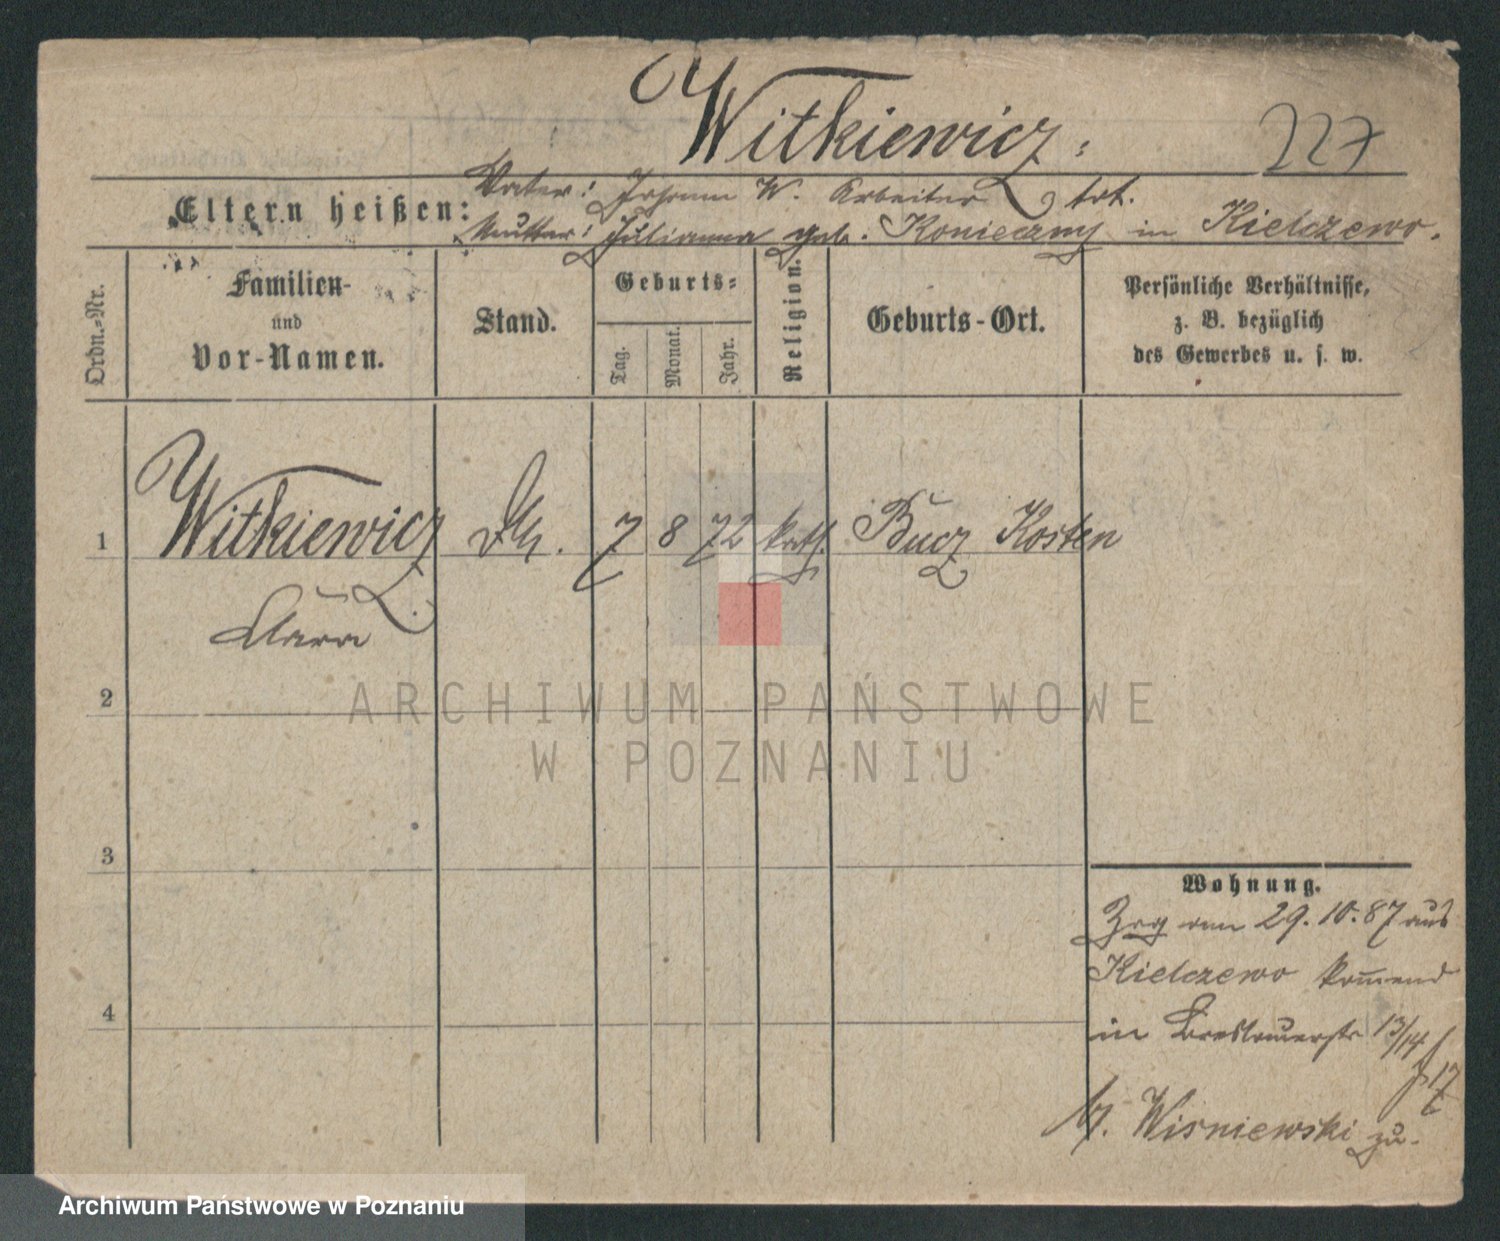 Witkiewicz.
227
Eltern heißen:
Vater: Johann W. Arbeiter tot.
Mutter: Julianna geb. Konieczny in Kielczewo.
Ordn.-Nr.
Familien-
und
Vor-Namen.
Stand.
Geburts-
Tag.
Monat.
Jahr.
Religion.
Geburts-Ort.
Persönliche Verhältnisse,
z. B. bezüglich
des Gewerbes u. s. w.
1 Witkiewicz 7 8 72 kath. Bucz Kosten
Clara
2
3
4
Wohnung.
Zzg am 29.10.87 aus
Kielczewo kommend
in Breslauerstr 13/14
b/. Wisniewski zu.
ARCHIWUM PAŃSTWOWE
W POZNANIU
Archiwum Państwowe w Poznaniu